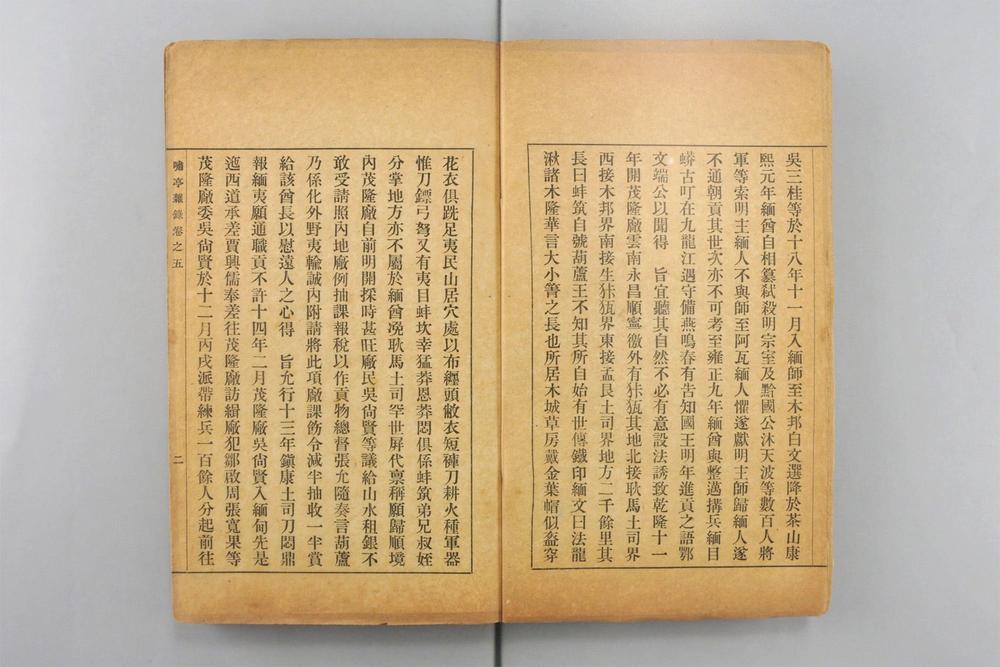 吳三桂等於十八年十一月入緬師至木邦白文選降於茶山康
熙元年緬酋自相篡弑殺明宗室及黔國公沐天波等數百人將
軍等索明主緬人不與師至阿瓦緬人懼遂獻明主師歸緬人遂
不通朝貢其世次亦不可考至雍正九年緬酋與整邁搆兵緬目
蟒古叮在九龍江遇守備燕鳴春有告知國王明年進貢之語鄂
文端公以聞得　旨宜聽其自然不必有意設法誘致乾隆十一
年開茂隆廠雲南永昌順寧徼外有㹤㹱其地北接耿馬土司界
西接木邦界南接生㹤㹱界東接孟艮土司界地方二千餘里其
長曰蚌筑自號葫蘆王不知其所自始有世傳鐵印緬文曰法龍
湫諸木隆華言大小箐之長也所居木城草房戴金葉帽似盔穿
花衣俱跣足夷民山居穴處以布纏頭敝衣短褲刀耕火種軍器
惟刀鏢弓弩又有夷目蚌坎幸猛莽恩莽悶俱係蚌筑弟兄叔姪
分掌地方亦不屬於緬酋浼耿馬土司罕世屏代禀稱願歸順境
內茂隆廠自前明開採時甚旺廠民吳尙賢等議給山水租銀不
敢受請照內地廠例抽課報稅以作貢物總督張允隨奏言葫蘆
乃係化外野夷輸誠內附請將此項廠課飭令減半抽收一半賞
給該酋長以慰遠人之心得　旨允行十三年鎭康土司刀悶鼎
報緬夷願通職貢不許十四年二月茂隆廠吳尙賢入緬甸先是
迤西道承差賈興儒奉差往茂隆廠訪緝廠犯鄒啟周張寬果等
茂隆廠委吳尙賢於十二月丙戌派帶練兵一百餘人分起前往
嘯亭雜錄卷之五　二